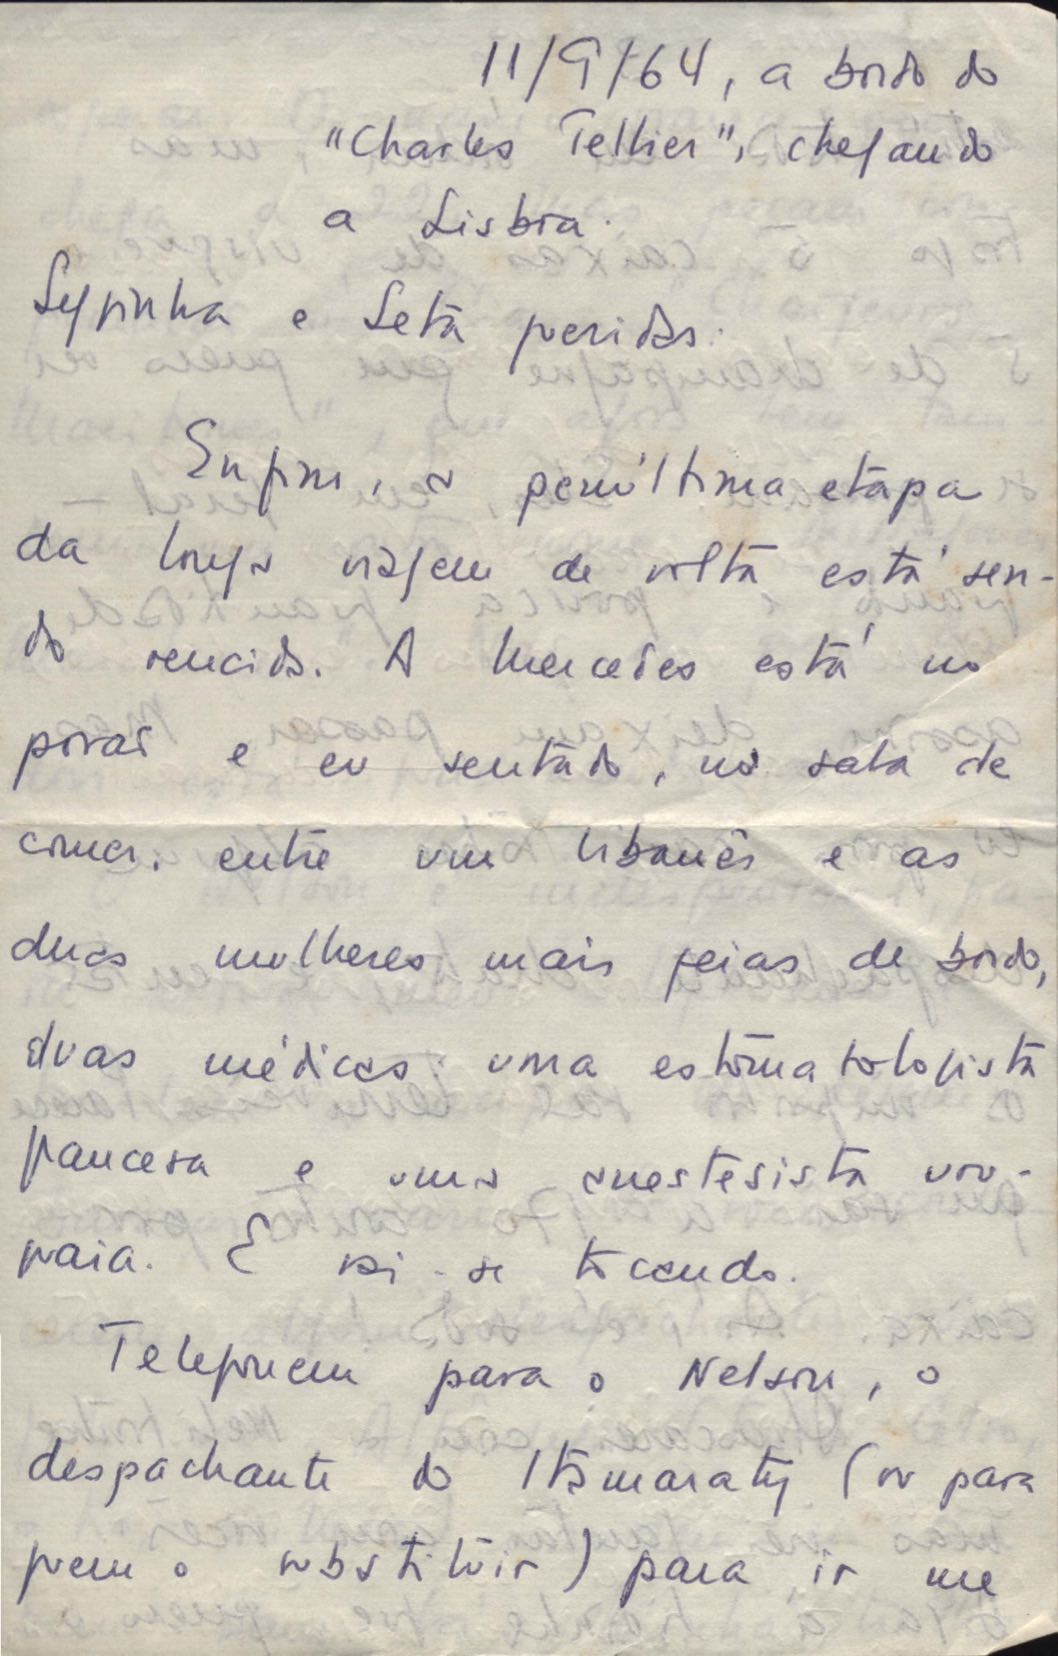 11/9/64, a bordo do
"Charles Tellier", chegando
a Lisboa.
Lyginha e Letã queridas.
Enfim, a penúltima etapa
da longa viagem de volta está sen-
do vencida. A Mercedes está no
porão e eu sentado, na sala de
comer, entre um libanês e as
duas mulheres mais feias de bordo,
duas médicas: uma estomatologista
francesa e uma anestesista uru-
guaia. E vai-se tocando.
Telefonem para o Nelson, o
despachante do Itamaraty (ou para
quem o substituir) para ir me